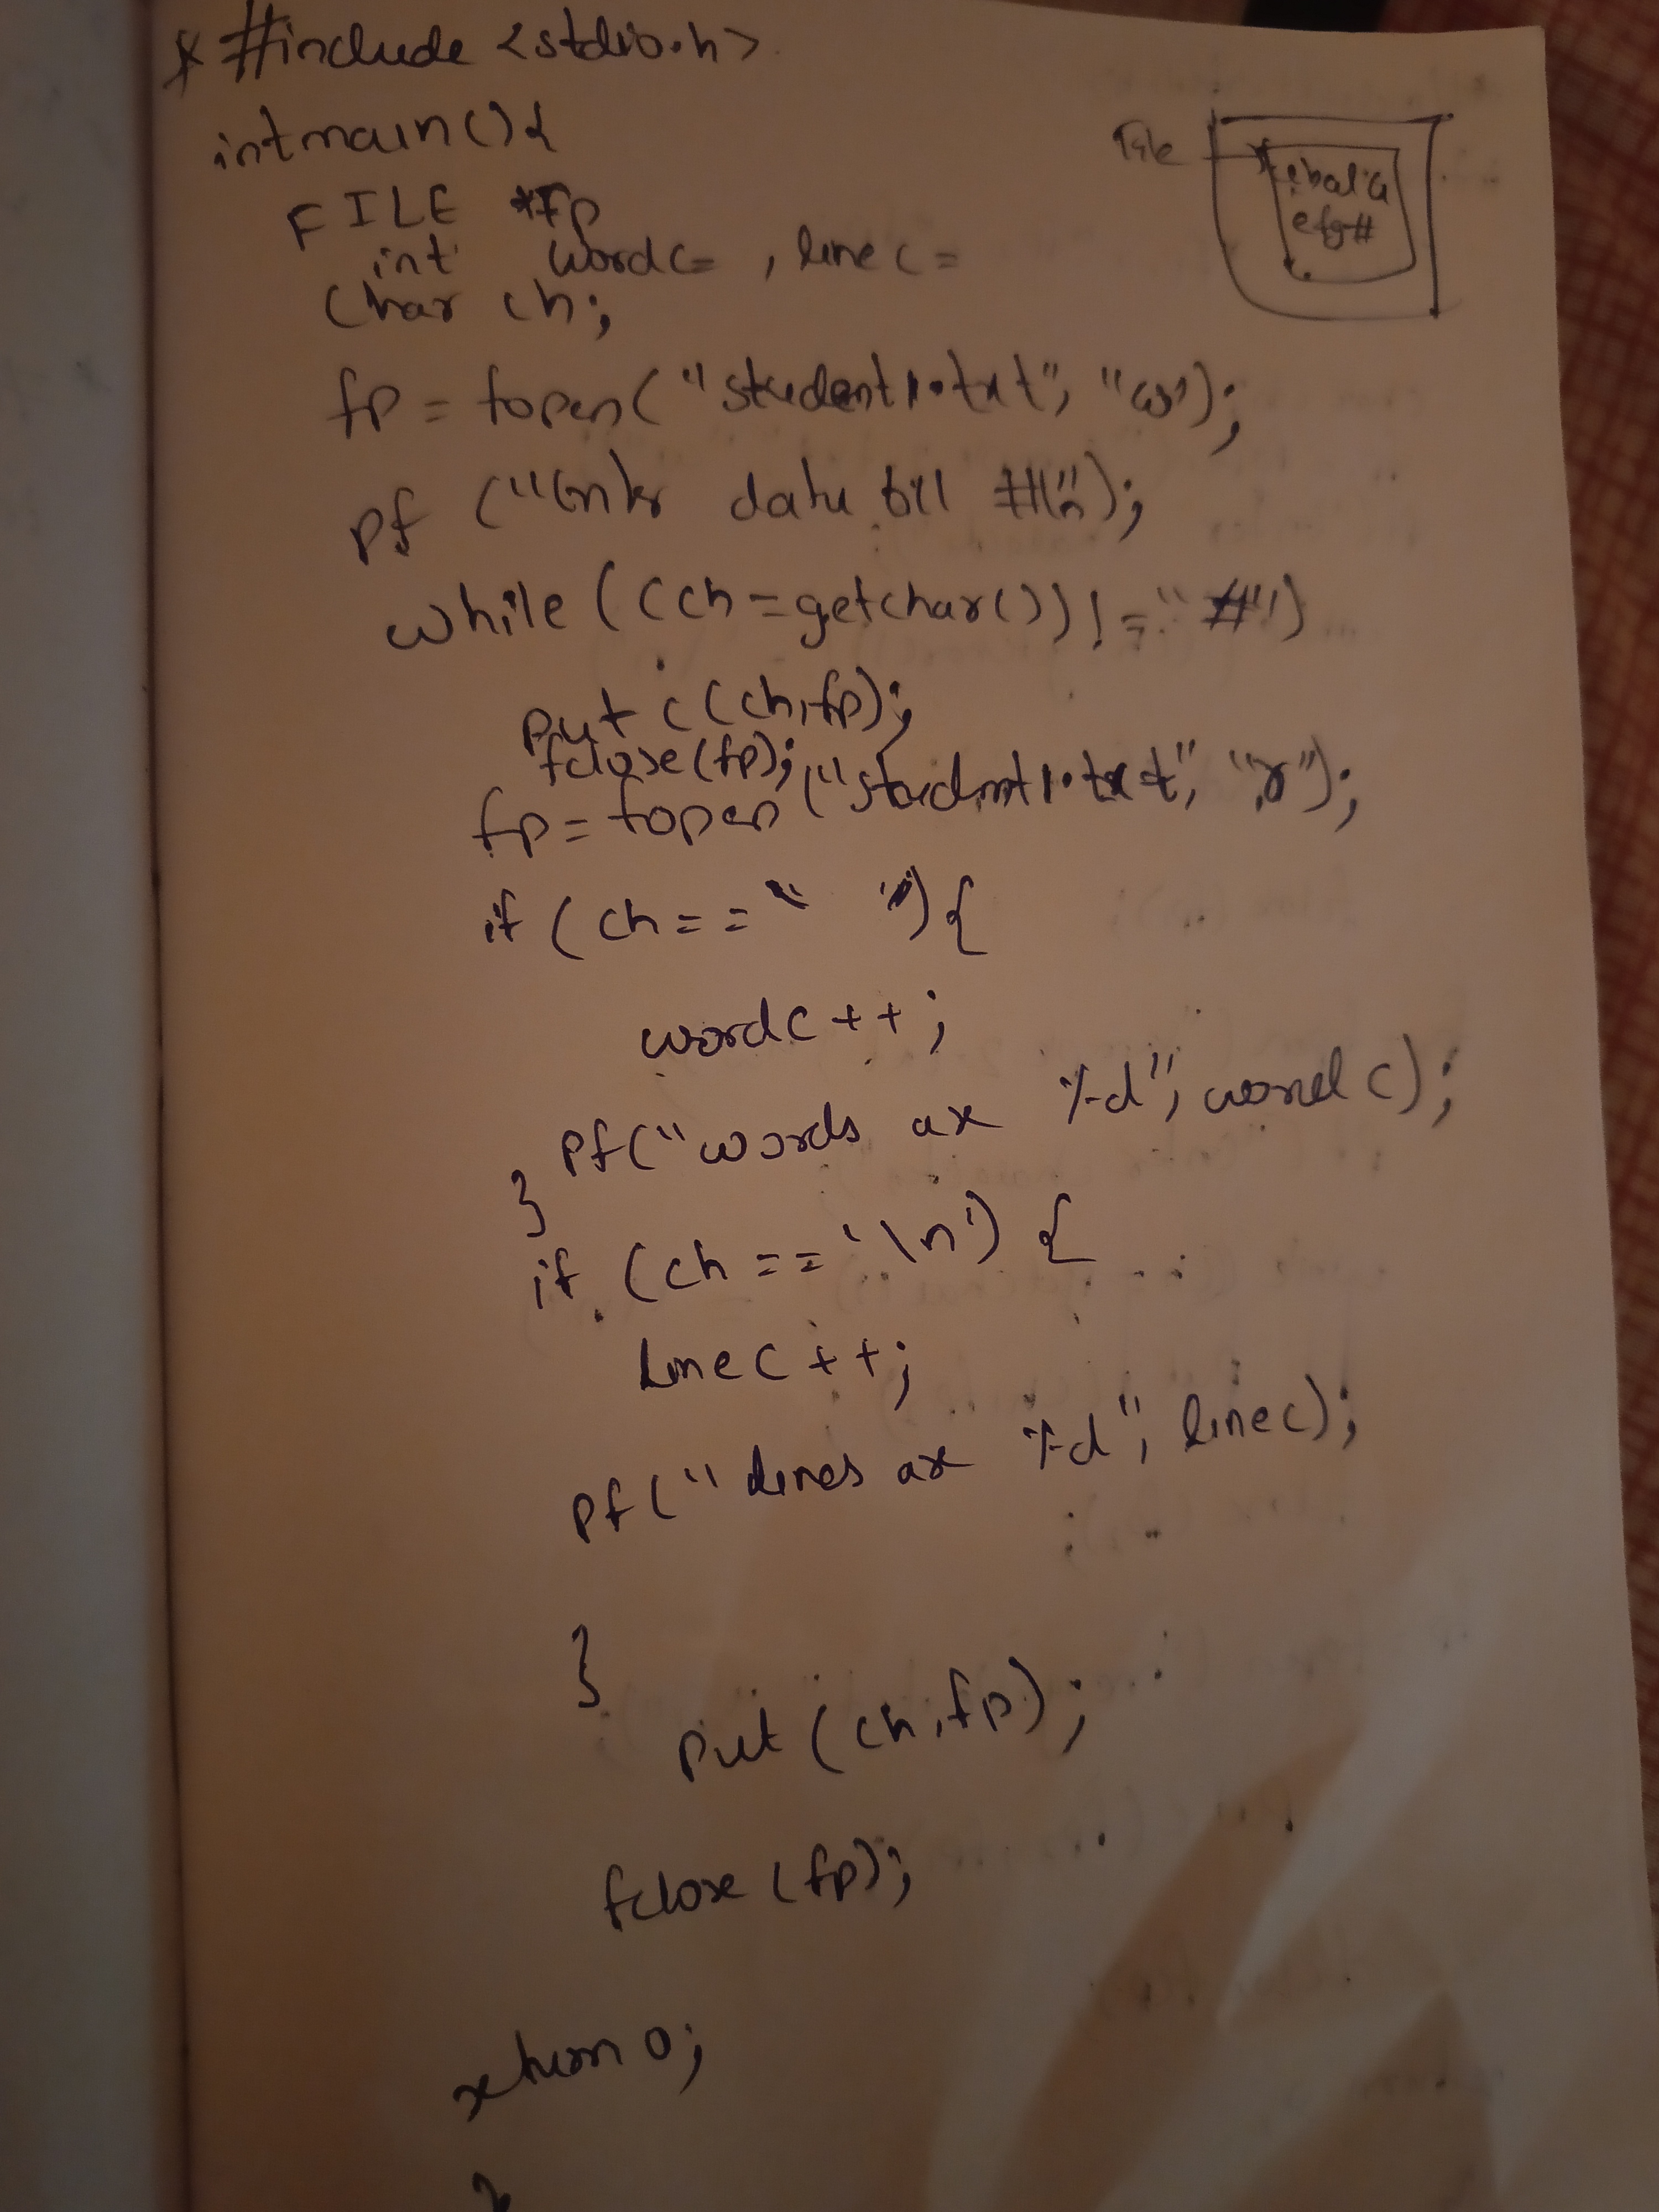 * #include <stdio.h>
int main () {
File
FILE *fp
efg#
int wordc= , linec=
char ch;
fp = fopen("student1.txt", "w");
pf ("Enter data till #\n");
while ((ch=getchar()) != '#')
putc(ch,fp);
fclose(fp);
fp = fopen("student1.txt", "r");
if (ch == " "){
wordc++;
pf("words are %d", wordc);
}
if (ch == '\n') {
linec++;
pf("lines are %d", linec);
}
put (ch,fp);
fclose (fp);
return 0;
}